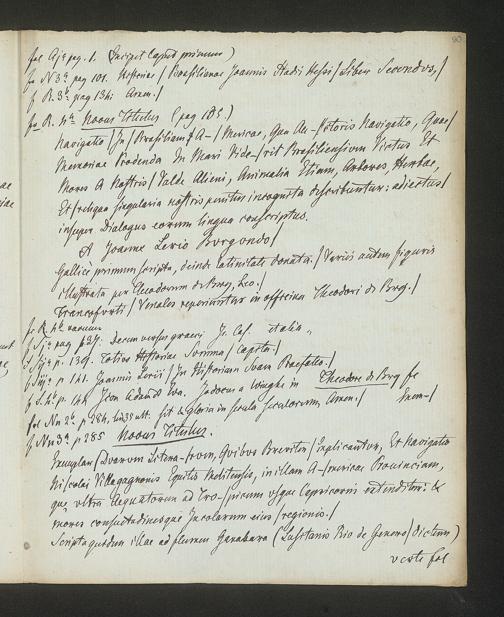 fol Aj^e pag. 1. Incipit Caput primum)
f. N 3^a pag 101. Historiae / Brasilianae Joannis Stadii Hessi / Liber Secondus, /
f R. 3^b pag 134 Amen. /
fo R. 4^a Novus Titulus (pag 135.)
Navigatio / In / Brasiliam A- / mericae, Qua Au- / ctoris Navigatio, Quae /
Memoriae Prodenda In Mari Vide- / rit Brasiliensium Victus Et
Mores A Nostris / Valde Alieni, Animalia Etiam, Arbores, Herbae,
Et reliqua singularia nostris penitus incognita describuntur: adiectus /
insuper Dialogus eorum lingua conscriptus.
A Joanne Lerio Burgundo /
Gallicè primum scripta, deinde latinitate donata. / Variis autem figuris
illustrata per Theodorum de Bry, &co. /
Francofurti / Venales reperiuntur in officina Theodori de Bry. /
f. R. 4^b vacuum
f Sj^a pag 137: Decem versus graeci italia,,
p. 139. Totius Historiae Summa / Capita. /
p 141. Joannis Lerii / In Historiam Suam Praefatio. /
f. S. 4^b p. 148 Jodocus a Winghe in Theodore de Bry fe
fol Nn 2^b p 284, sit & gloria in secula seculorum, Amen. /
f Nn 3^a p 285 Novus Titulus.
Exemplar / Duarum Litera- / rum, Quibus Breviter / Explicantur, Et Navigatio
Ni / colai Villagagnonis Equitis Melitensis, in illam A- / mericae Provinciam,
que, ultra Aequatorem ad Tro- / picum usque Capricorni extenditur: &
mores consuetudinesque Incolarum eius / regionis. /
Scripta quedam illae ad flumen Ganabara (Lusitanis Rio de Genero / Dictum)
verte fol